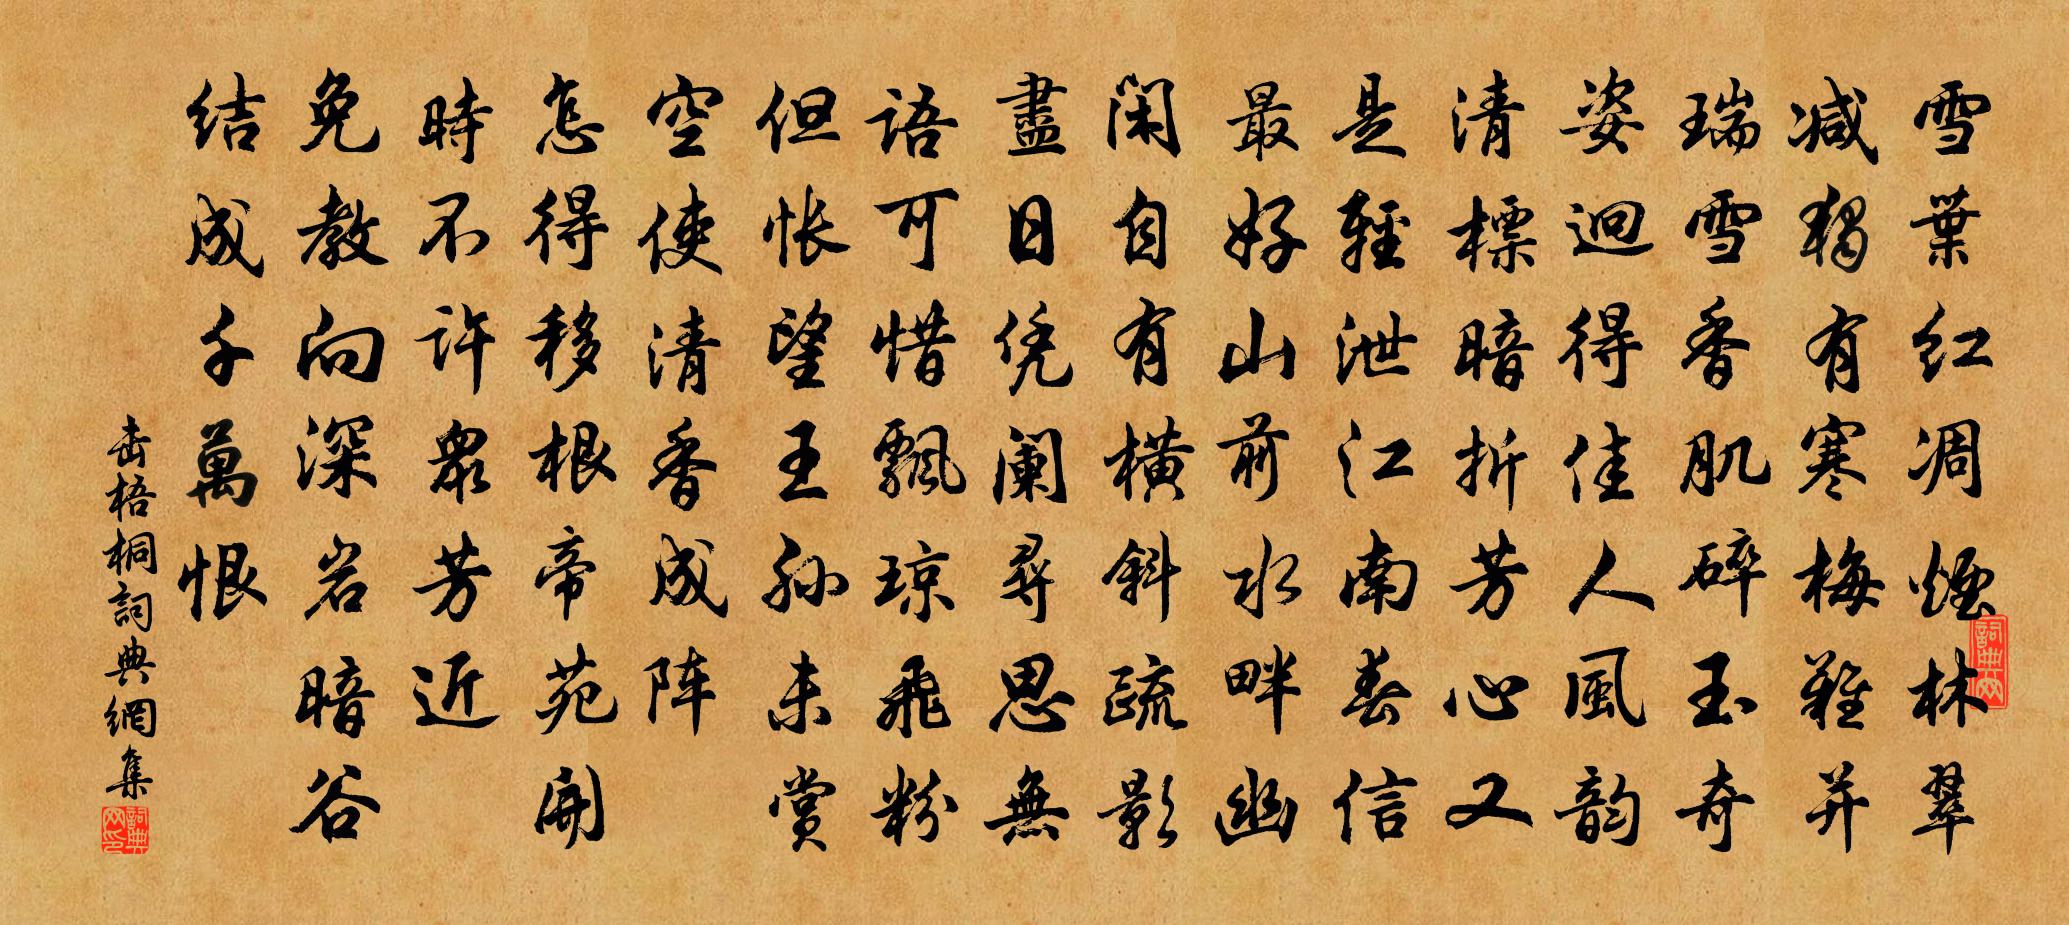 雪葉红凋煙林翠
减獨有寒梅難并
瑞雪香肌碎玉奇
姿迥得佳人風韵
清標暗折芳心又
是輕泄江南春信
最好山前水畔幽
闲自有橫斜疏影
盡日凭阑尋思無
語可惜飄琼飛粉
但怅望王孙未赏
空使清香成阵
怎得移根帝苑開
時不许眾芳近
免教向深岩暗谷
结成千萬恨
击梧桐詞典網集
詞典网
詞典网印